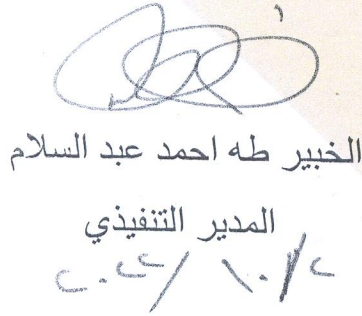 الخبير طه احمد عبد السلام
المدير التنفيذي
٢٠٢٢/١٠/٢